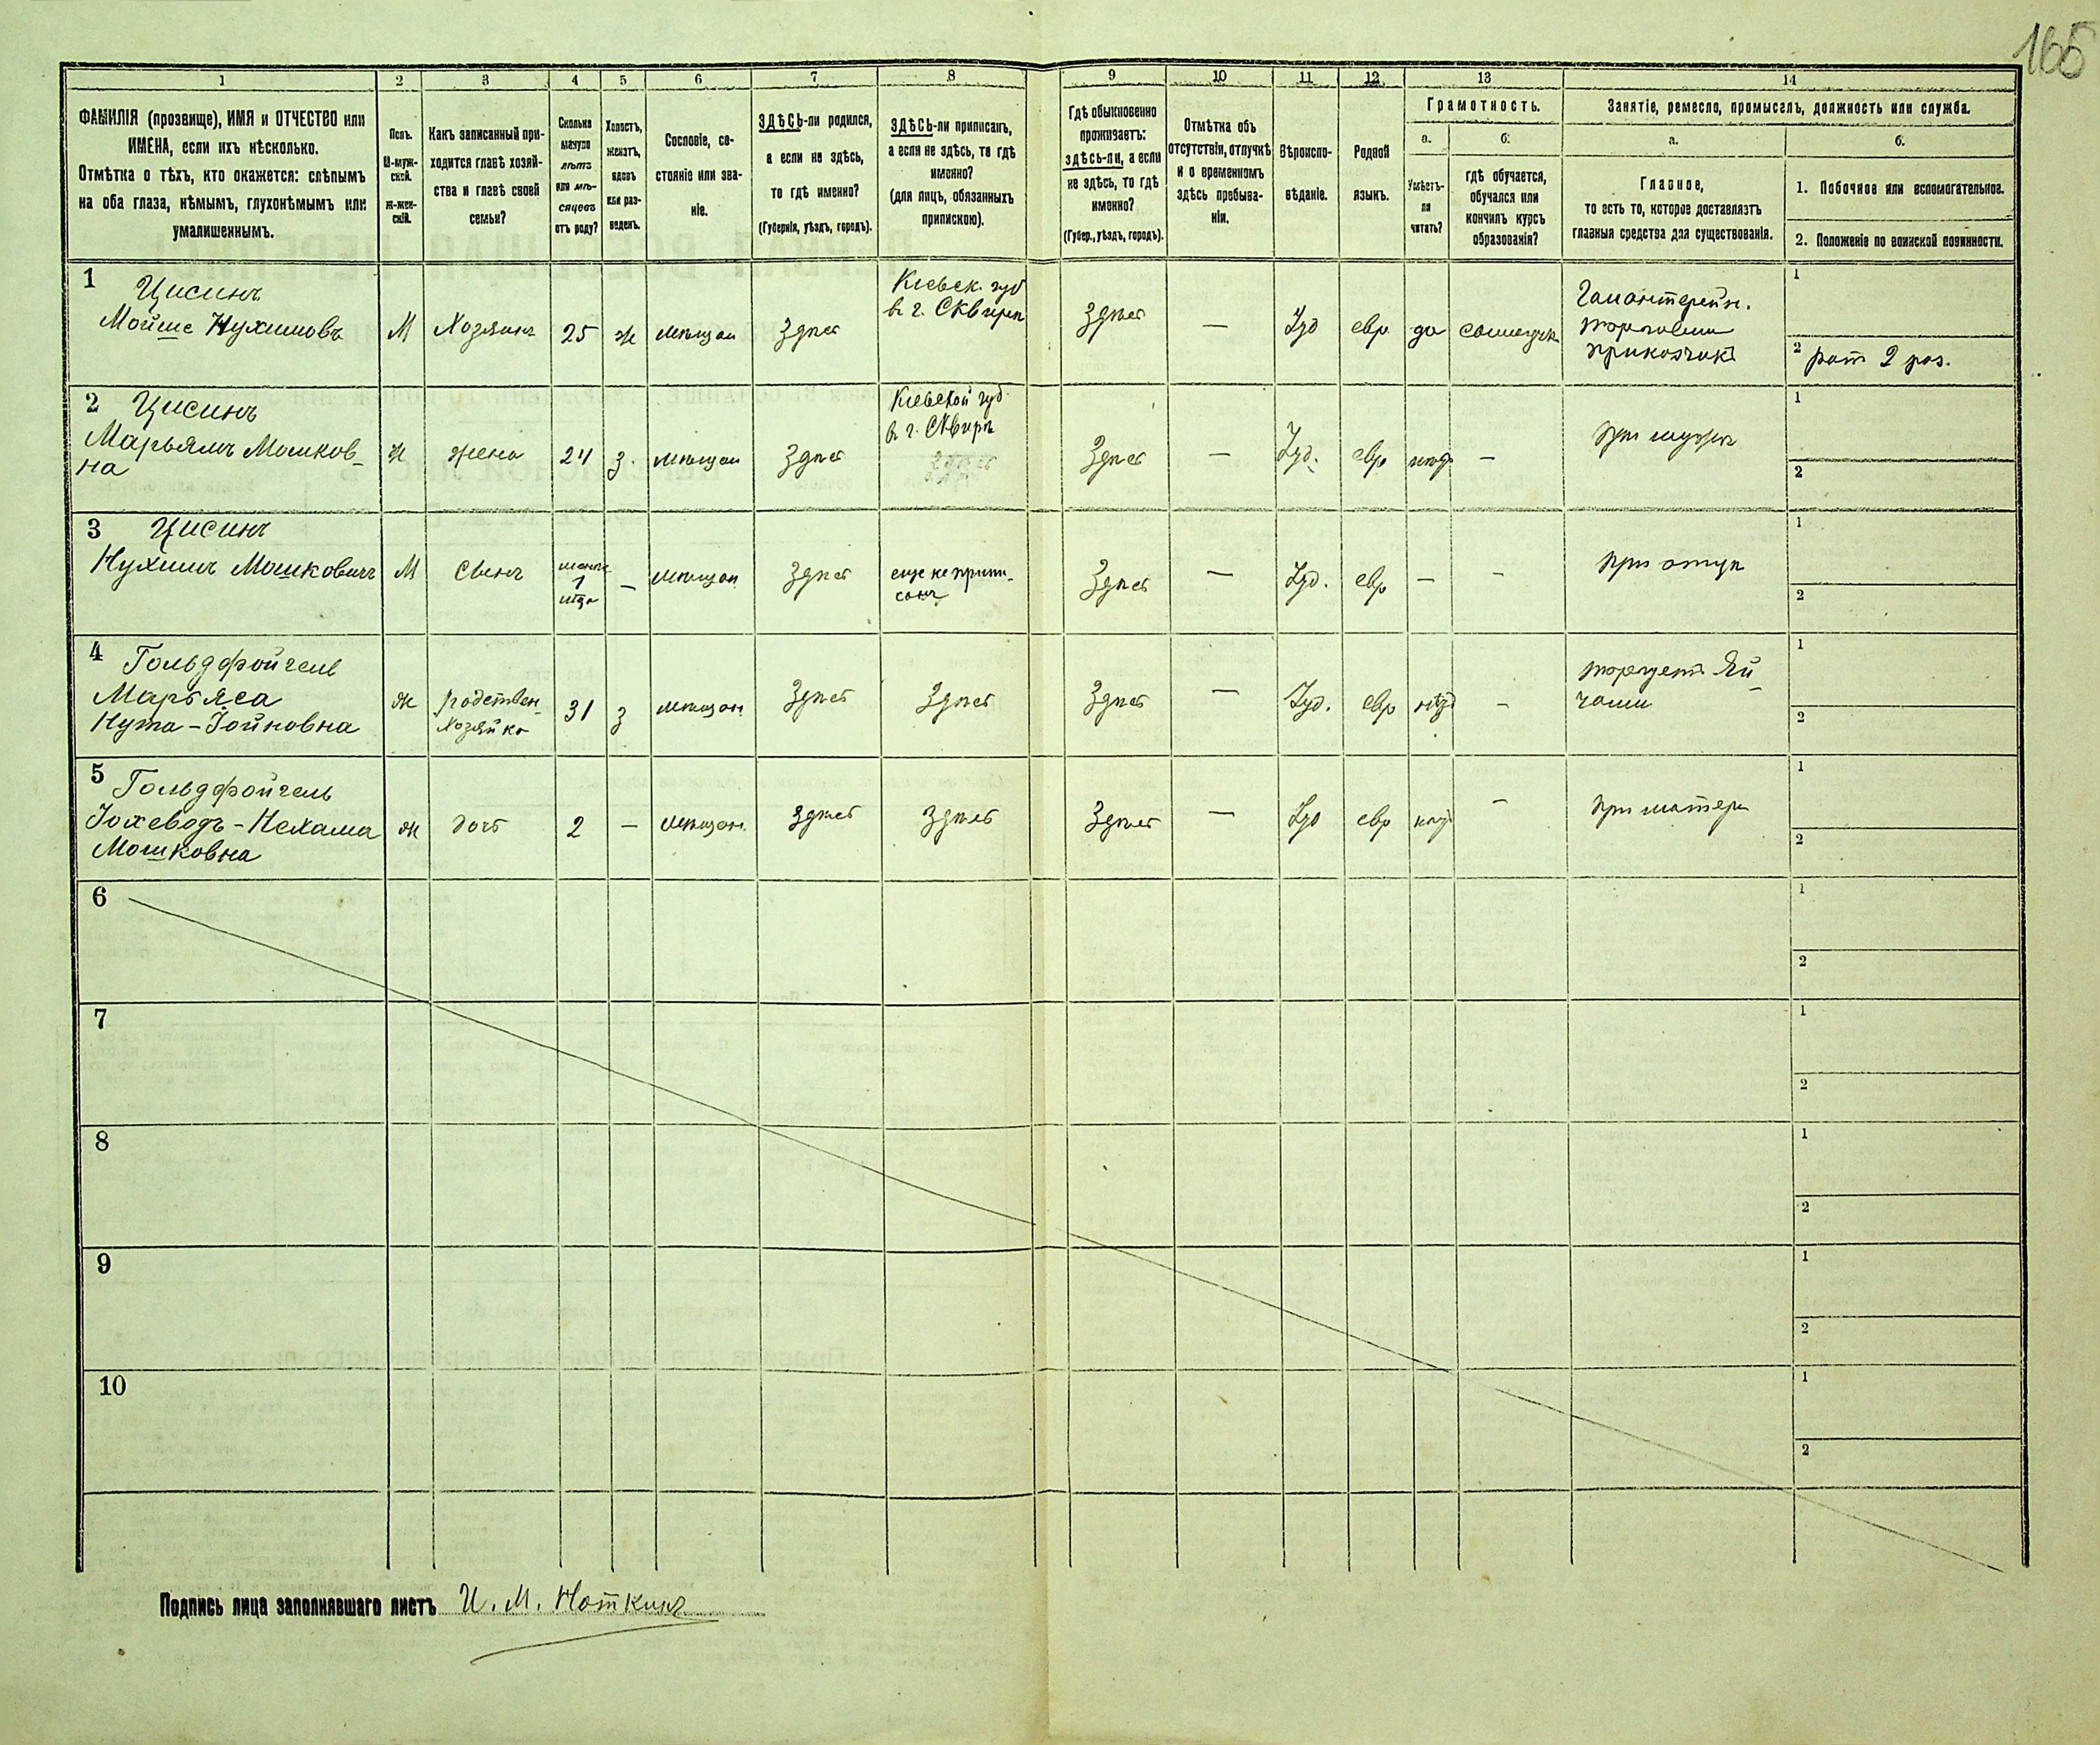 165
1 2 3 4 5 6 7 8 9 10 11 12 13 14
ФАМИЛІЯ (прозвище), ИМЯ и ОТЧЕСТВО или
ИМЕНА, если ихъ нѣсколько.
Отмѣтка о тѣхъ, кто окажется: слѣпымъ
на оба глаза, нѣмымъ, глухонѣмымъ или
умалишеннымъ.
Полъ.
М-муж-
ской.
Ж-жен-
скій.
Какъ записанный при-
ходится главѣ хозяй-
ства и главѣ своей
семьи?
Сколько
минуло
лѣтъ
или мѣ-
сяцевъ
отъ роду?
Холостъ,
женатъ,
вдовъ
или раз-
веденъ.
Сословіе, со-
стояніе или зва-
ніе.
ЗДѢСЬ-ли родился,
а если не здѣсь,
то гдѣ именно?
(Губернія, уѣздъ, городъ).
ЗДѢСЬ-ли приписанъ,
а если не здѣсь, то гдѣ
именно?
(для лицъ, обязанныхъ
припискою).
Гдѣ обыкновенно
проживаетъ:
здѣсь-ли, а если
не здѣсь, то гдѣ
именно?
(Губер., уѣздъ, городъ).
Отмѣтка объ
отсутствіи, отлучкѣ
и о временномъ
здѣсь пребыва-
ніи.
Вѣроиспо-
вѣданіе.
Родной
языкъ.
Грамотность.
а.
Умѣетъ-
ли
читать?
б.
гдѣ обучается,
обучался или
кончилъ курсъ
образованія?
Занятіе, ремесло, промыселъ, должность или служба.
а.
Главное,
то есть то, которое доставляетъ
главныя средства для существованія.
б.
1. Побочное или вспомогательное.
2. Положеніе по воинской повинности.
1 Цисинъ
Мойше Нухимовъ
М
Хозяинъ
25
ж
мѣщан
Здѣсь
Кіевск. губ
въ г. Сквирѣ
Здѣсь
—
Іуд
евр
да
Галантерейн.
торговли
приказчикъ
1
2 рат 2 раз.
2 Цисинъ
Марьямъ Мошков-
на
Ж
жена
24
з.
мѣщан
Здѣсь
Кіевской губ.
въ г. Сквирѣ
Здѣсь
—
Іуд.
евр
—
при мужѣ
1
2
3 Цисинъ
Нухимъ Мошковичъ
М
Сынъ
1
—
мѣщан
Здѣсь
еще не припи-
санъ
Здѣсь
—
Іуд.
евр
—
—
при отцѣ
1
2
4 Гольдфойгель
Марьяса
Нута-Іойновна
Ж
Родствен.
Хозяйка
31
з
мѣщан
Здѣсь
Здѣсь
Здѣсь
—
Іуд.
евр
—
торгует Яй-
цами
1
2
5 Гольдфойгель
Іохеводъ-Нехама
Мошковна
Ж
дочь
2
—
мѣщан.
Здѣсь
Здѣсь
Здѣсь
—
Іуд
евр
—
при матери
1
2
6
1
2
7
1
2
8
1
2
9
1
2
10
1
2
Подпись лица заполнявшаго листъ И. М. Ноткинъ